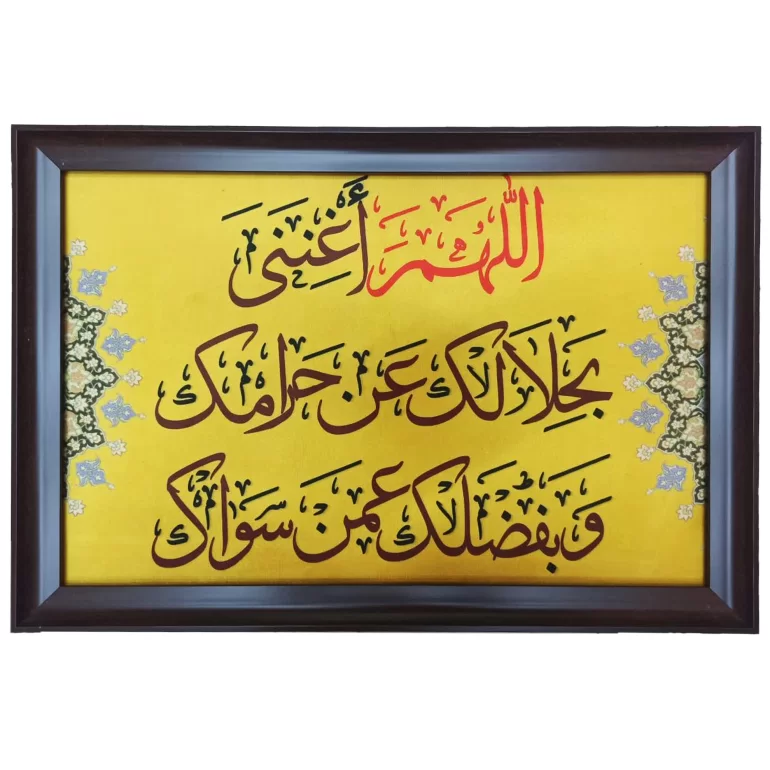 اللّٰهُمَّ أَغْنِنِى
بِحَلَالِكَ عَنْ حَرَامِكَ
وَبِفَضْلِكَ عَمَّنْ سِوَاكَ